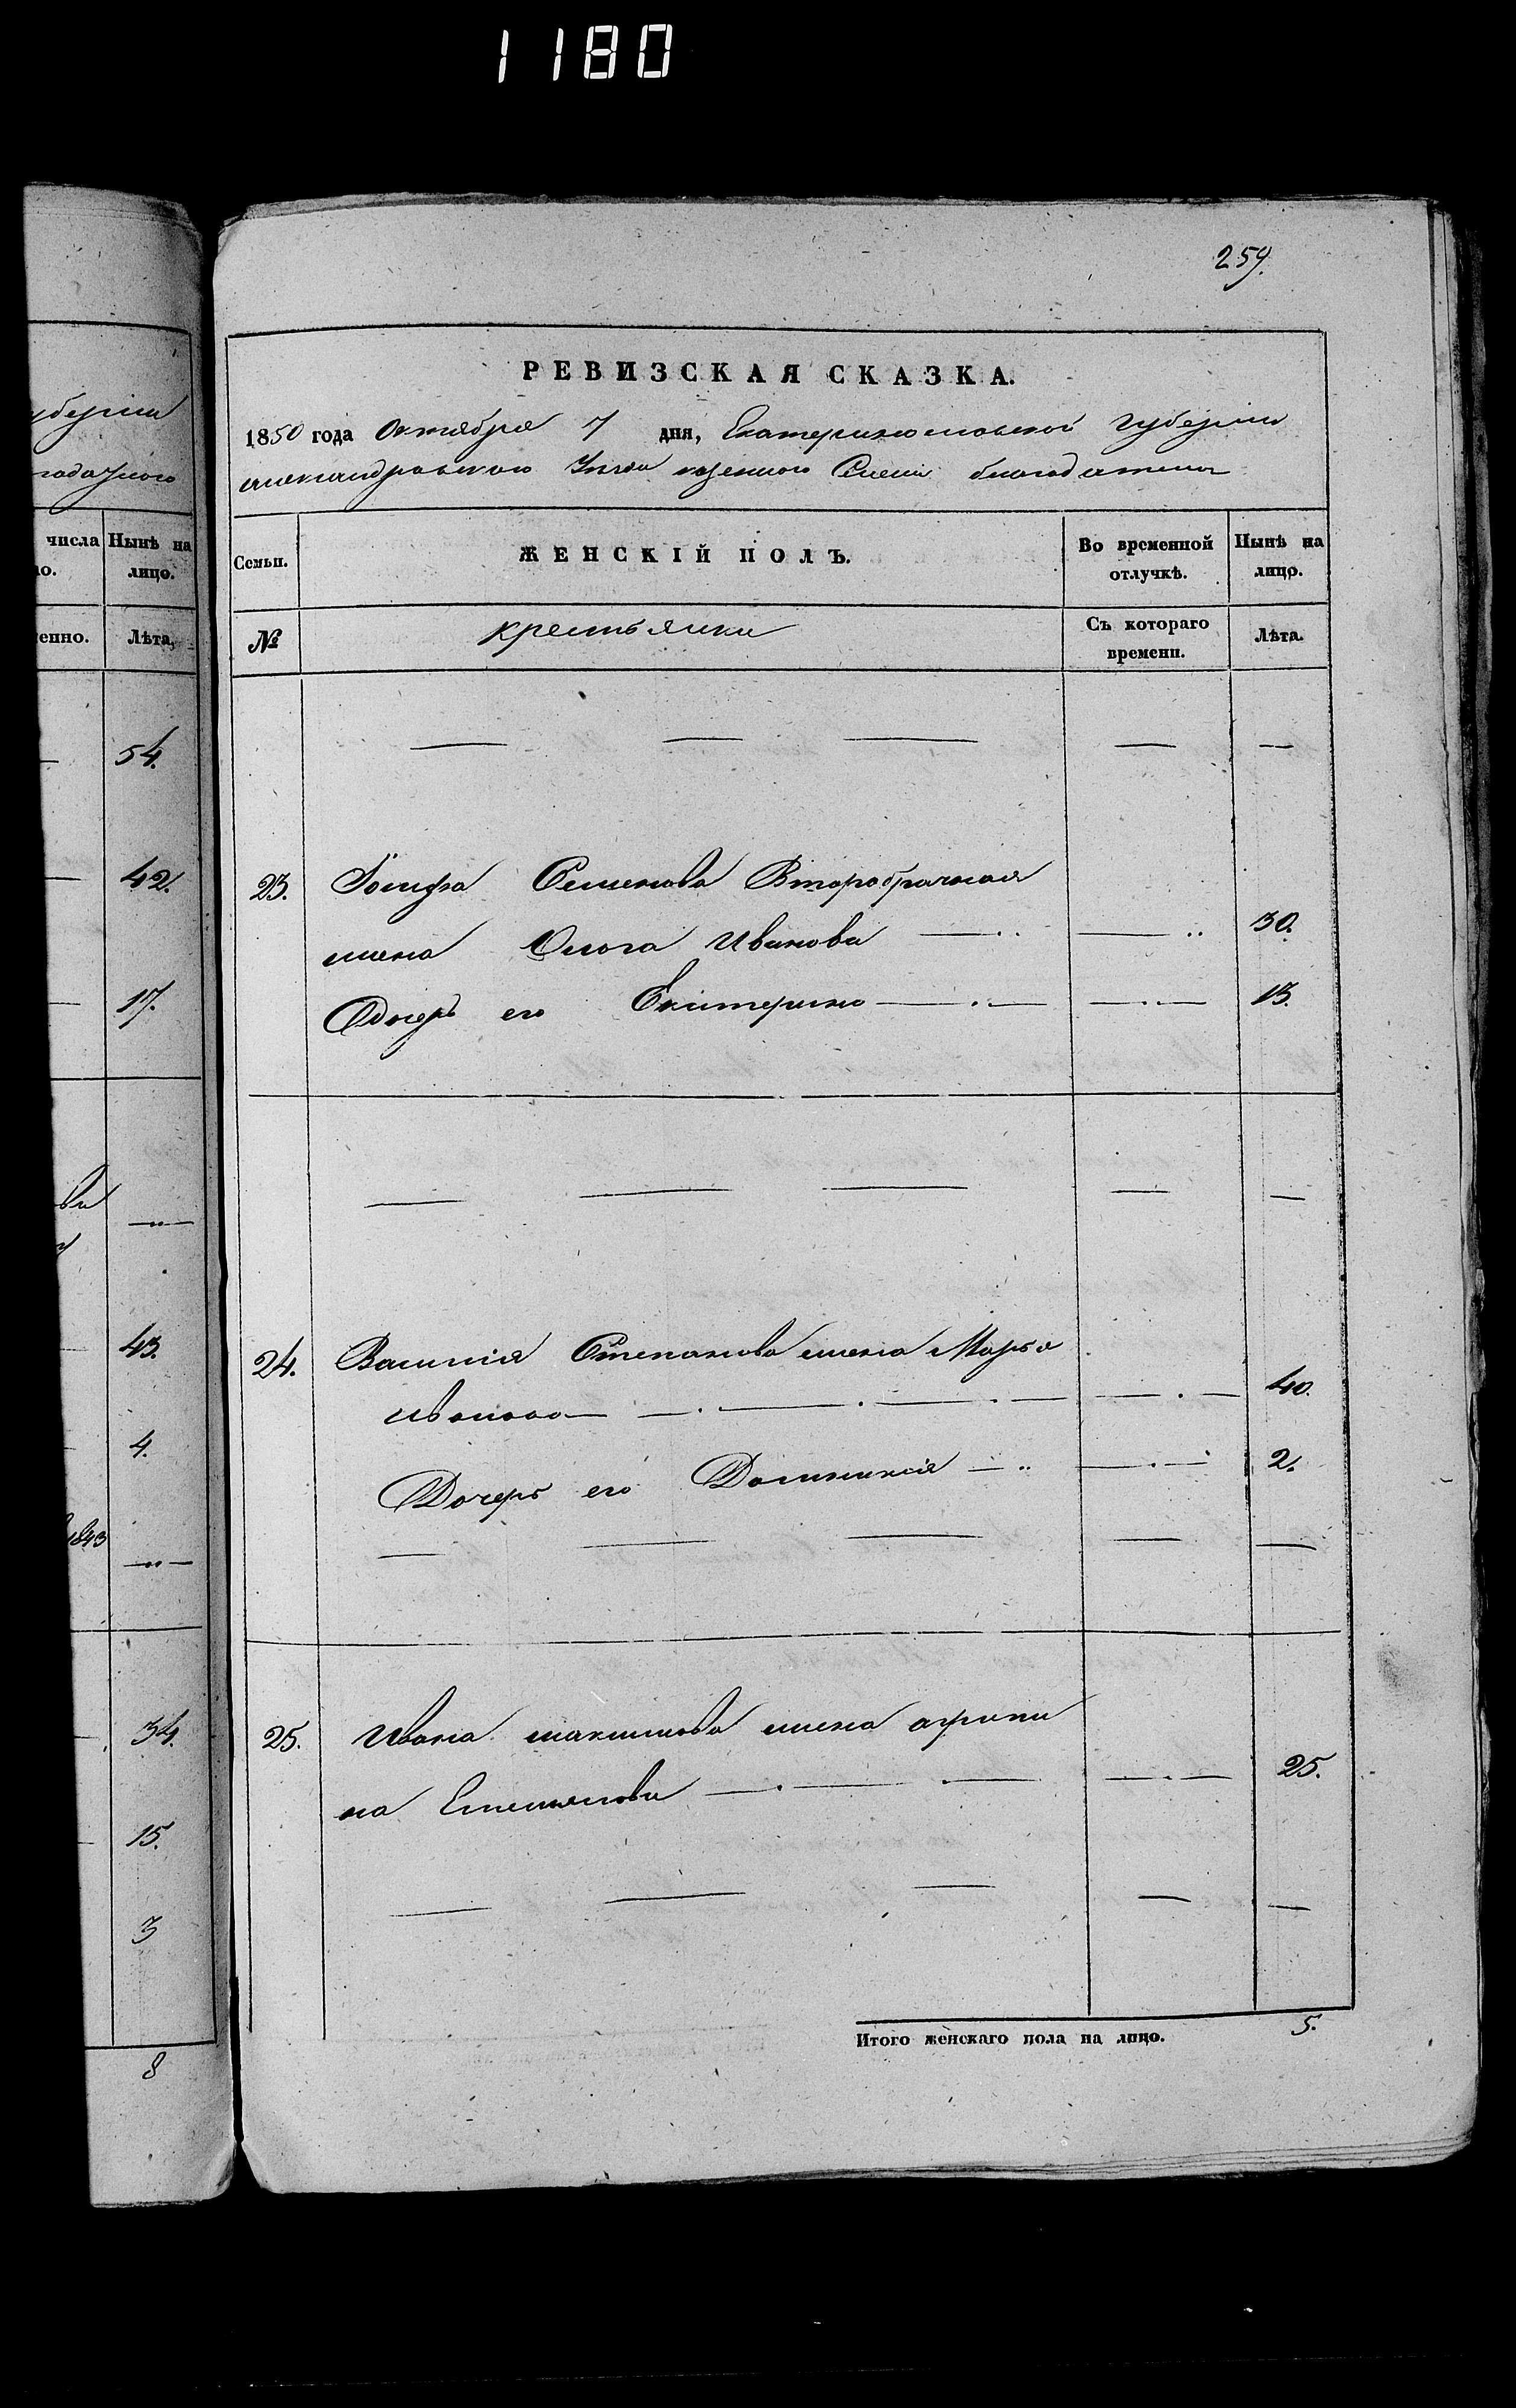 1180
259.
РЕВИЗСКАЯ СКАЗКА.
1850 года Октября 7 дня, Екатеринославской Губерніи
александровского Уезда казенного Селенія благодатного
Семьи. ЖЕНСКІЙ ПОЛЪ. Во временной отлучкѣ. Нынѣ на лицо.
№ крестьянки Съ котораго времени. Лѣта.
23. Іосифа Семенова Второбрачная
жена Ольга Иванова 30.
Дочерь его Екатерина 13.
24. Василія Степанова жена Марья
Иванова 40.
Дочерь его Домникія 2.
25. Ивана максимова жена агрипи
на Емельянова 25.
Итого женскаго пола на лицо. 5.
уберніи
числа Нынѣ на
ло. лицо.
енно. Лѣта,
54.
42.
17.
ва
43.
4.
1843
34.
15.
3
8